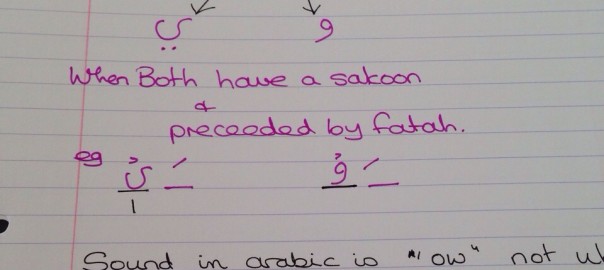 ي و
When Both have a sakoon
&
preceeded by fatah.
eg يْ َ وْ َ
Sound in arabic is " ow" not